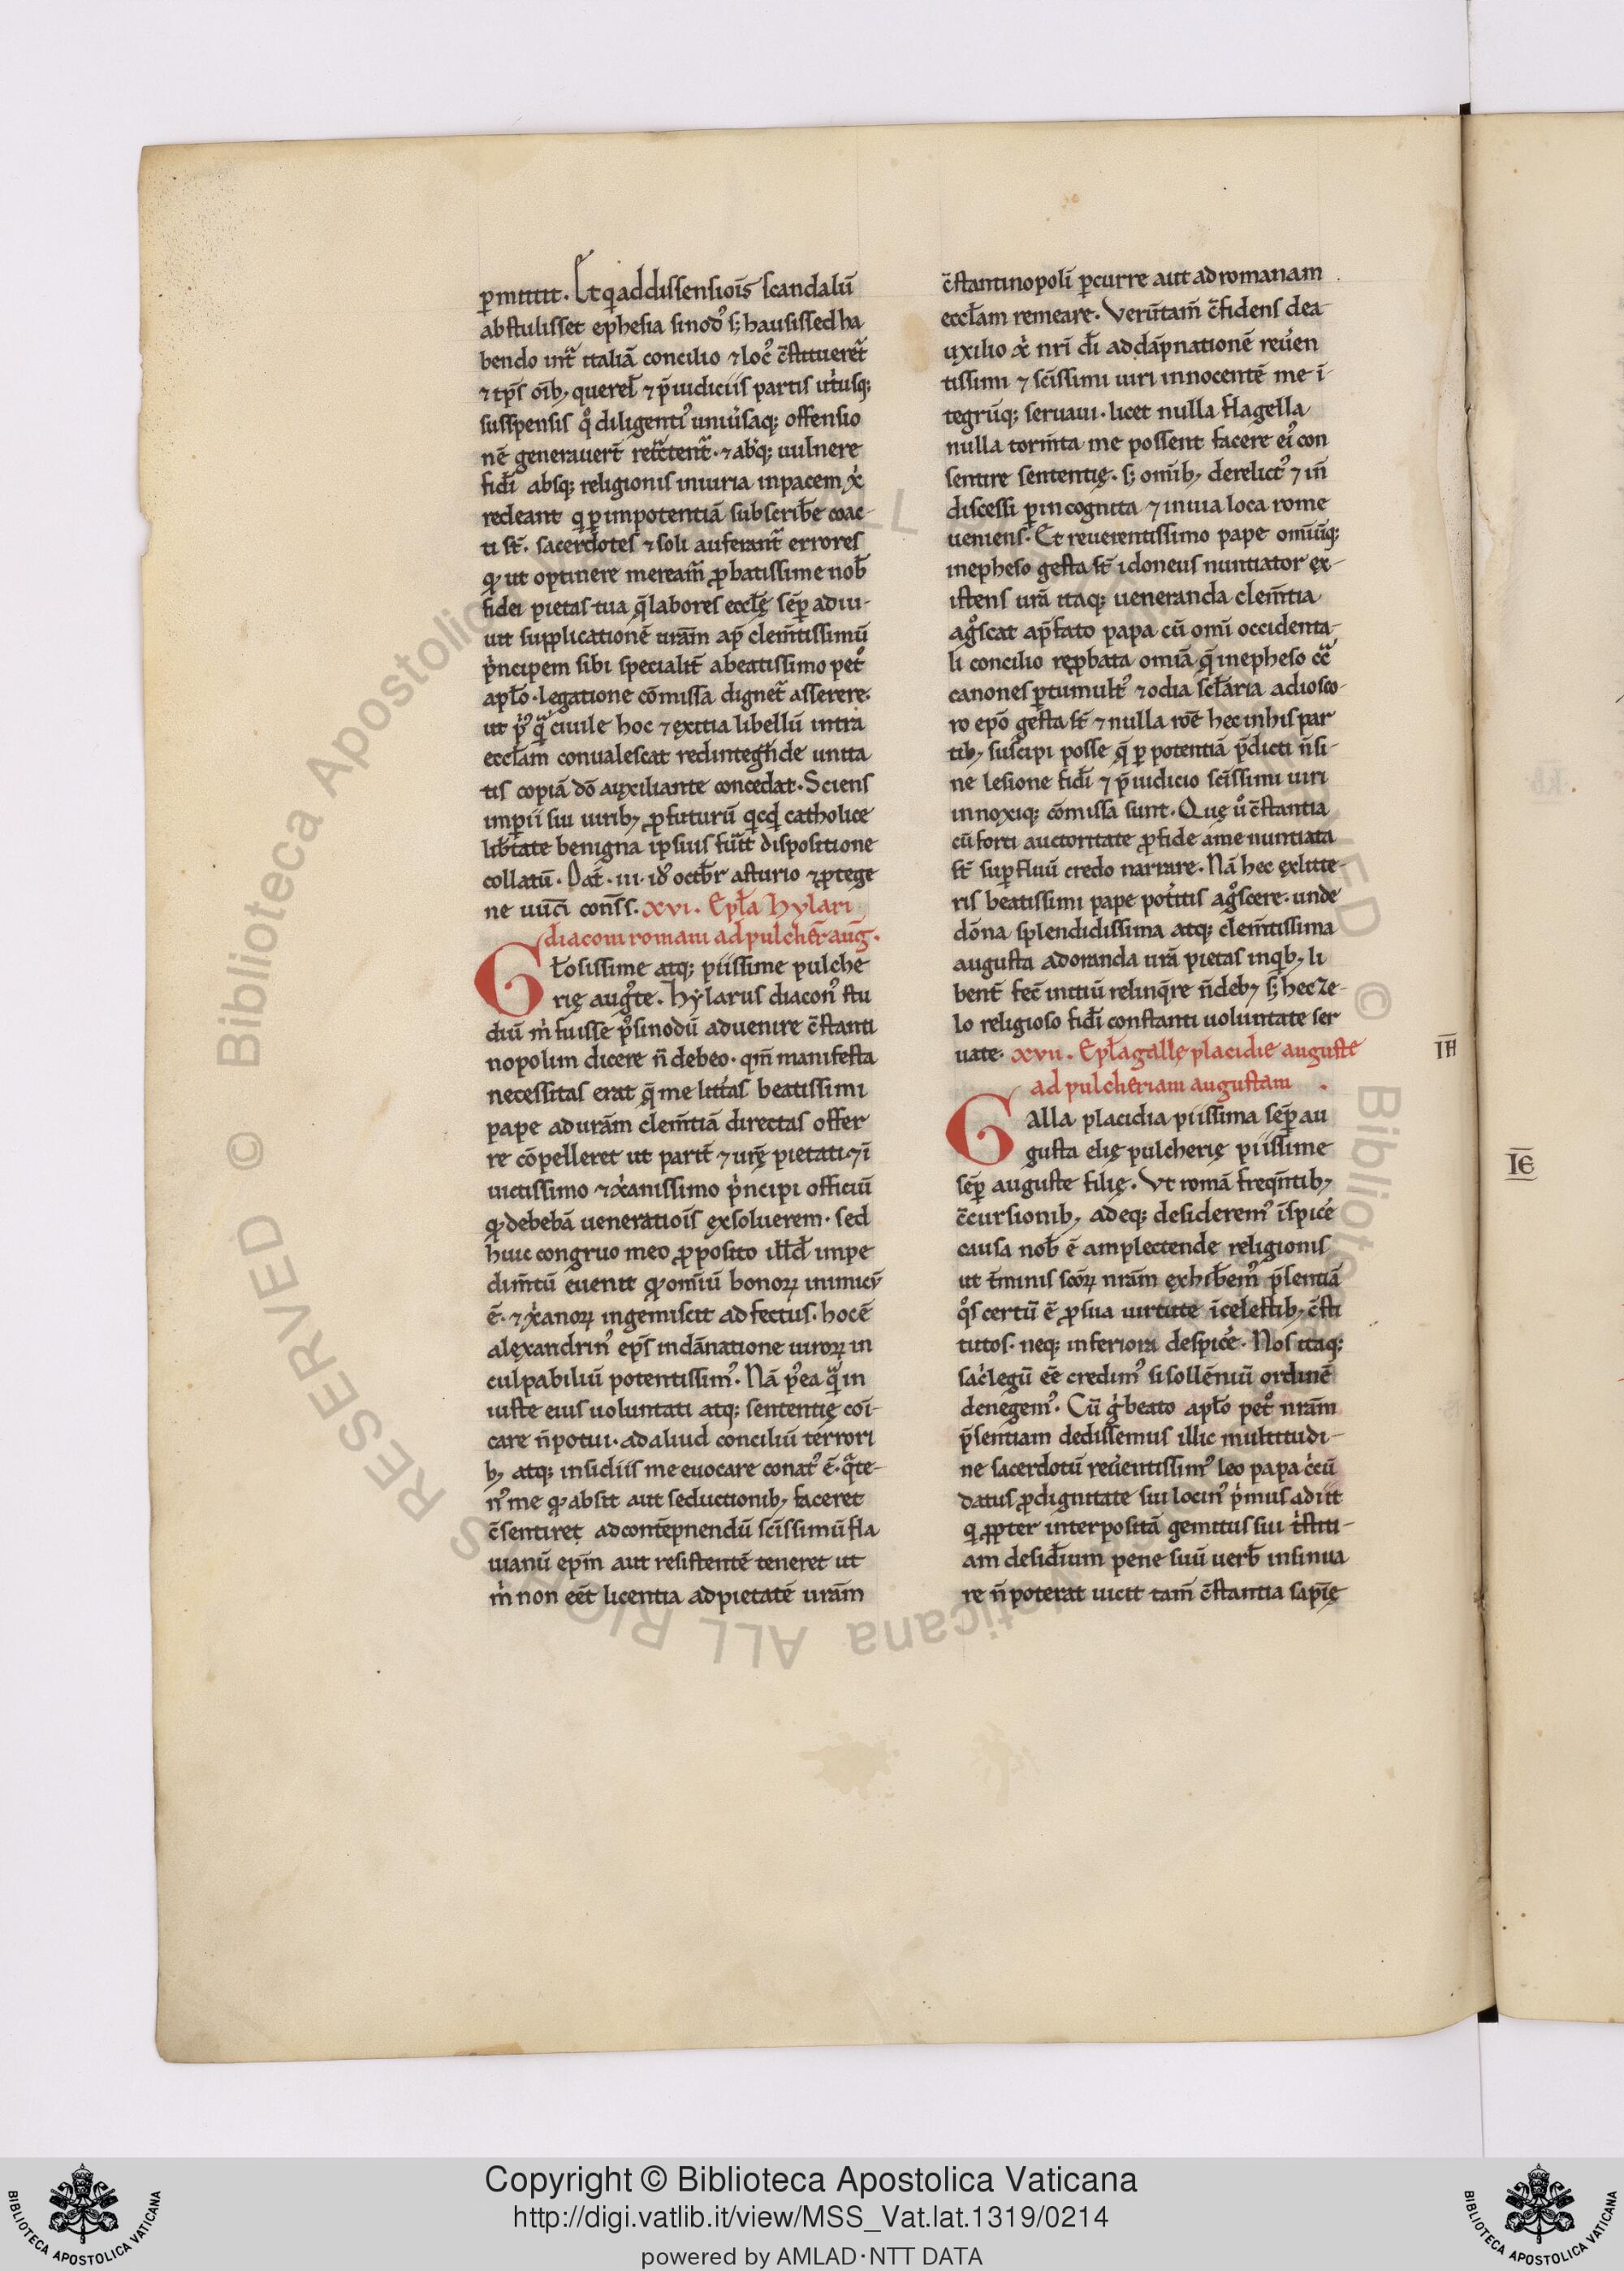 p̱mittit. Et qͥ addissensioīs scandalū
abstulisset ephesia sinodꝰ s; hausissed ha
bendo int̃ italiā concilio ⁊ locꝰ c̄stitueret̃
⁊ tp̄s oīb; querel̄ ⁊ p̄iudiciis partis ut̾usq;
suspensis qͦ diligentiꝰ uniu̾saq; offensio
nē generauer̄t ret̃ctent̃. ⁊ absq; uulnere
fidī absq; religionis iniuria inpacem xͥ
redeant qͥ ꝑimpotentiā subscrib̄e coac-
ti st̄. sacerdotes ⁊ soli auferant̃ errores
qͦ ut optinere meream̃ ꝓbatissime nob̄
fidei pietas tua q̄ labores eccl̄ę sēꝑ adiu-
uit supplicationē urām ap̄ clem̄tissimū
pͥncipem sibi specialit̄ abeatissimo pet̊
apl̄o. legatione cōmissa dignet̃ asserere.
ut pͥꝰ qͣ̃ ciuile hoc ⁊ ęxitia libellū intra
eccl̄am conualescat redintegrͣde unita
tis copiā dō auxiliante concedat. Sciens
imꝑii sui uirib; ꝓfuturū qͥcqͥd catholice
lib̄tate benigna ipsius fu̾it dispositione
collatū. Dat̄. iii. idꝰ octb̄r asturio ⁊ ꝓtoge
ne uuc̄i cons̄s. xvi. Epl̄a hylari
diaconi romani ad pulcher̄ aug̅.
Gl̄osissime atq; piissime pulche
rię augͦte. Hẏlarus diaconꝰ stu
diū mͥ fuisse pꝰsinodū aduenire c̄stanti
nopolim dicere n̄ debeo. qm̄ manifesta
necessitas erat q̄ me litt̾as beatissimi
pape ad urām clem̄tiā directas offer
re cōpelleret ut parit̄ ⁊ urę̄ pietati ⁊ ī
uictissimo ⁊ xͥanissimo pͥncipi officiū
qͦ debebā ueneratioīs ęxsoluerem. sed
huic congruo meo ꝓposito ill̄d impe
dim̄tū euenit qͦ omīū bonoꝝ inimicū
ē. ⁊ xͥanoꝝ ingemiscit adfectus. hocē
alęxandrinꝰ ep̄s indānatione uiroꝝ in
culpabiliū potentissimꝰ. Nā pꝰea qͣ̃ in
iuste eius uoluntati atq; sententię coī-
care n̄ potui. ad aliud conciliū terrori
b; atq; insidiis me euocare conatꝰ ē. qͣte-
nꝰ me qͦ absit aut seductionib; faceret
c̄sentiręt adcontēpnendū scīssimū fla
uianū epm̄ aut resistentē teneret ut
mͥ non eēt licentia adpietatē urām
c̄stantinopolī ꝑcurre aut ad romanam
eccl̄am remeare. Veru̅tam̄ c̄fidens dea
uxilio xͥ nrī dī ad dāpnationē reu̾en
tissimi ⁊ scīssimi uiri innocentē me ī
tegrūq; seruaui. licet nulla flagella
nulla torm̄ta me possent facere eiꝰ con
sentire sententię. s; omīb; derelictꝰ ⁊ in̄
discessi ꝑincognita ⁊ inuia loca rome
ueniens. Et reuerentissimo pape omīūq;
inepheso gesta st̄ idoneus nuntiator ęx-
istens urā itaq; ueneranda clem̄tia
agͦscat ap̄fato papa cū omī occidenta-
li concilio rępbata omīa q̄ inepheso cͨ
canones ꝑtumultꝰ ⁊ odia scl̄aria adiosco-
ro epō gesta st̄ ⁊ nulla roē hec inhis par
tib; suscipi posse q̄ ꝑ potentiā p̄dicti n̄si-
ne lesione fidī ⁊ p̄iudicio scīssimi uiri
innoxiq; cōmissa sunt. Quę uͦ c̄stantia
cū forti auctoritate ꝓfide ame nuntiata
st̄ suꝑfluū credo narrare. Nā hec ęxlitte-
ris beatissimi pape pot̾itis agͦscere. unde
dōna splendidissima atq; clem̄tissima
augusta adoranda urā pietas inqͥb; li
bent̄ fec̄ initiū relinq̄re n̄deb; s; hec ze-
lo religioso fidī constanti uoluntate ser
uate. xvii. Epl̄a gallę placidie auguste
ad pulcheriam augustam.
Galla placidia piissima sēꝑ au
gusta elię pulcherię piissime
sēꝑ auguste filię. Vt romā freqn̄tib;
c̄cursionib; adeq; desideremꝰ īspic̾e
causa nob̄ ē amplectende religionis
ut t̄minis scōꝝ nrām ęxhib̄emꝰ p̄sentiā
qͦs certū ē ꝓsua uirtute īcelestib; c̄sti
tutos. neq; inferiora despic̾e. Nos itaq;
sacͥlegū ēe credimꝰ si sollēniū ordinē
denegemꝰ. Cū gͥ beato apl̄o pet̊ nrām
p̄sentiam dedissemus illic multitudi-
ne sacerdotū reu̾entissimꝰ leo papa cͥcū
datus ꝓdignitate sui locinꝰ pͥmus adiit
qͥ ꝓpter interpositā gemitus sui tͥstiti-
am desid̄ium pene suū uerb̄ insinua
re n̄ poterat uicit tam̄ c̄stantia sapīę
IA
IE
Copyright © Biblioteca Apostolica Vaticana
http://digi.vatlib.it/view/MSS_Vat.lat.1319/0214
powered by AMLAD·NTT DATA